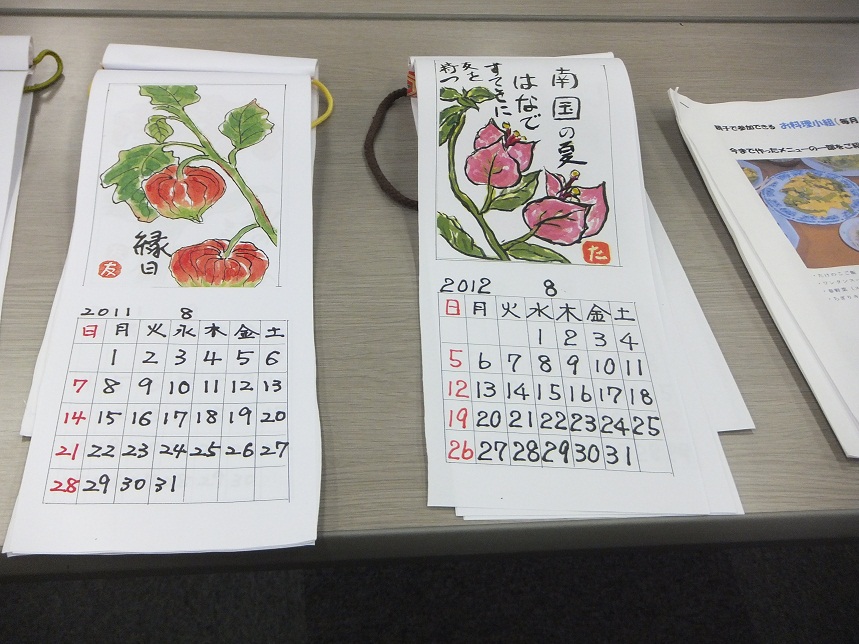 縁日
友
2011 8
日 月 火 水 木 金 土
1 2 3 4 5 6
7 8 9 10 11 12 13
14 15 16 17 18 19 20
21 22 23 24 25 26 27
28 29 30 31
南国の夏
はなで
すてきに
た
2012 8
日 月 火 水 木 金 土
1 2 3 4
5 6 7 8 9 10 11
12 13 14 15 16 17 18
19 20 21 22 23 24 25
26 27 28 29 30 31
親子で参加できる お料理小組(毎月
今まで作ったメニューの一部をご紹